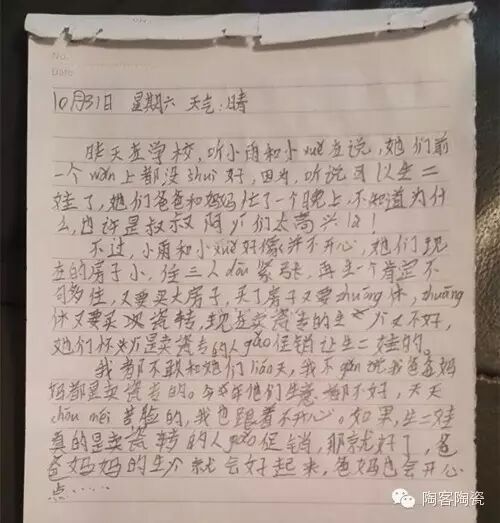 No.
Date
10月31日 星期六 天气:晴
昨天在学校,听小雨和小xuě在说,她们前
一个wǎn上都没shuì好,因为,听说可以生二
娃了,她们爸爸和妈妈忙了一个晚上,不知道为什
么,也许是叔叔阿姨们太高兴了!
不过,小雨和小xuě好像并不开心,她们现
在的房子小,住三人dōu紧张,再生一个肯定不
句多住,又要买大房子,买了房子又要zhuāng休,zhuāng
休又要买次瓷砖,现在卖瓷专的生意又不好,
她们怀疑是卖瓷专的人gǎo促销让生二娃的。
我都不敢和她们liáo天,我不gǎn说我爸爸妈
妈都是卖瓷专的。今年他们生意都不好,天天
chóu méi苦脸的,我也跟着不开心。如果,生二娃
真的是卖瓷砖的人gǎo促销,那就好了,爸
爸妈妈的生意就会好起来,爸妈也会开心
点……
陶客陶瓷